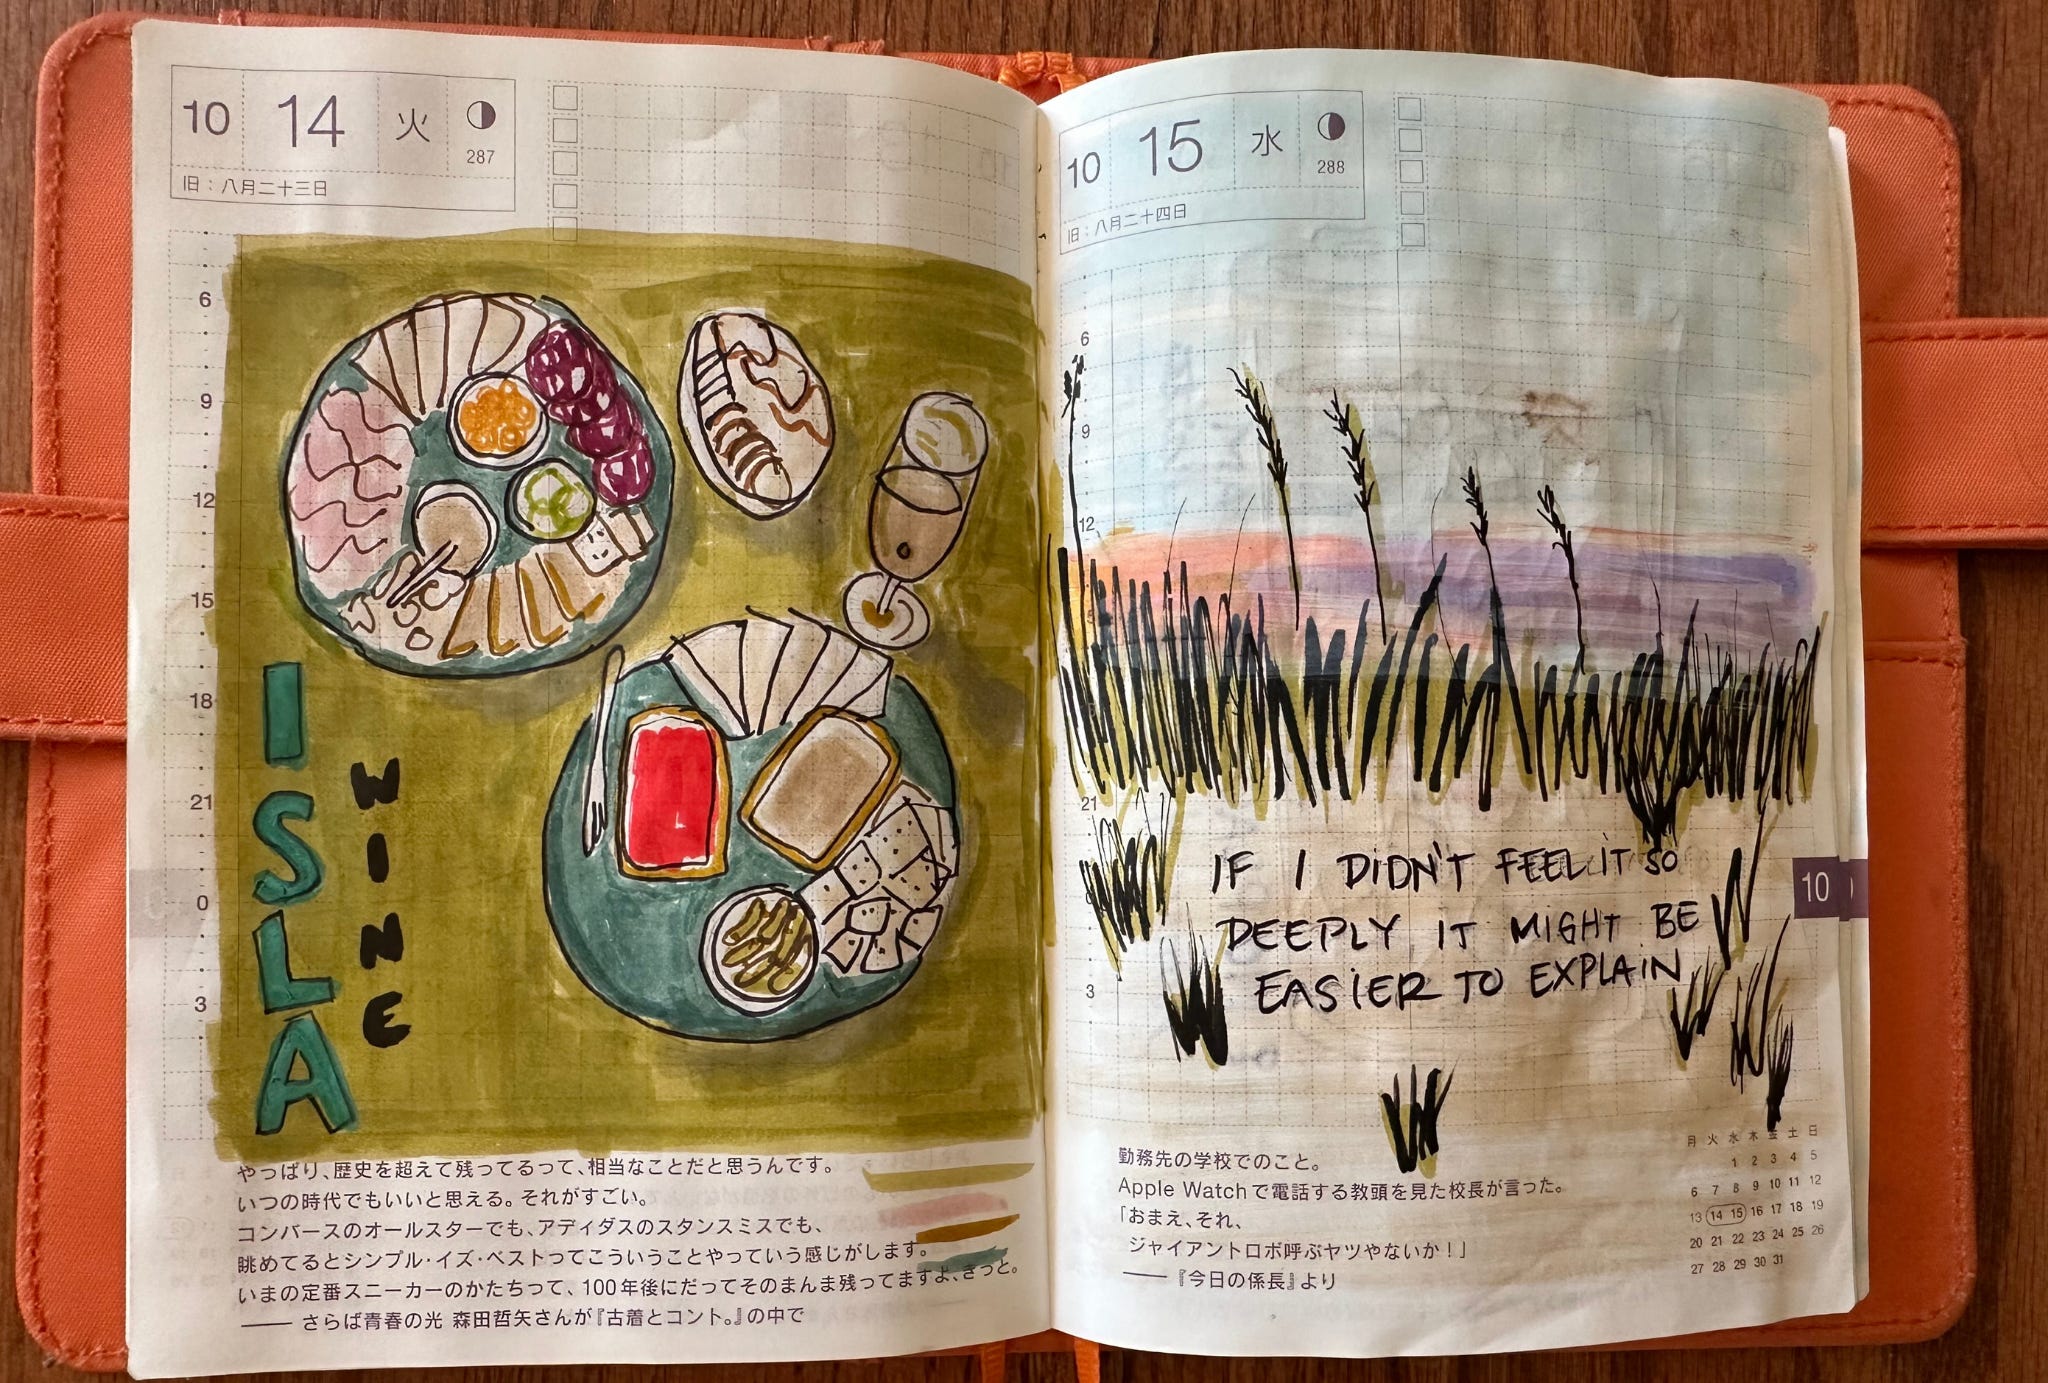 10 14 火
287
旧：八月二十三日
6
9
12
15
18
21
0
3
ISLA
WINE
やっぱり、歴史を超えて残ってるって、相当なことだと思うんです。
いつの時代でもいいと思える。それがすごい。
コンバースのオールスターでも、アディダスのスタンスミスでも、
眺めてるとシンプル・イズ・ベストってこういうことやっていう感じがします。
いまの定番スニーカーのかたちって、100年後にだってそのまんま残ってますよ、きっと。
── さらば青春の光 森田哲矢さんが『古着とコント。』の中で
10 15 水
288
旧：八月二十四日
6
9
12
21
3
IF I DIDN'T FEEL IT SO
DEEPLY IT MIGHT BE
EASIER TO EXPLAIN
10
勤務先の学校でのこと。
Apple Watchで電話する教頭を見た校長が言った。
「おまえ、それ、
ジャイアントロボ呼ぶヤツやないか！」
── 『今日の係長』より
月 火 水 木 金 土 日
1 2 3 4 5
6 7 8 9 10 11 12
13 14 15 16 17 18 19
20 21 22 23 24 25 26
27 28 29 30 31